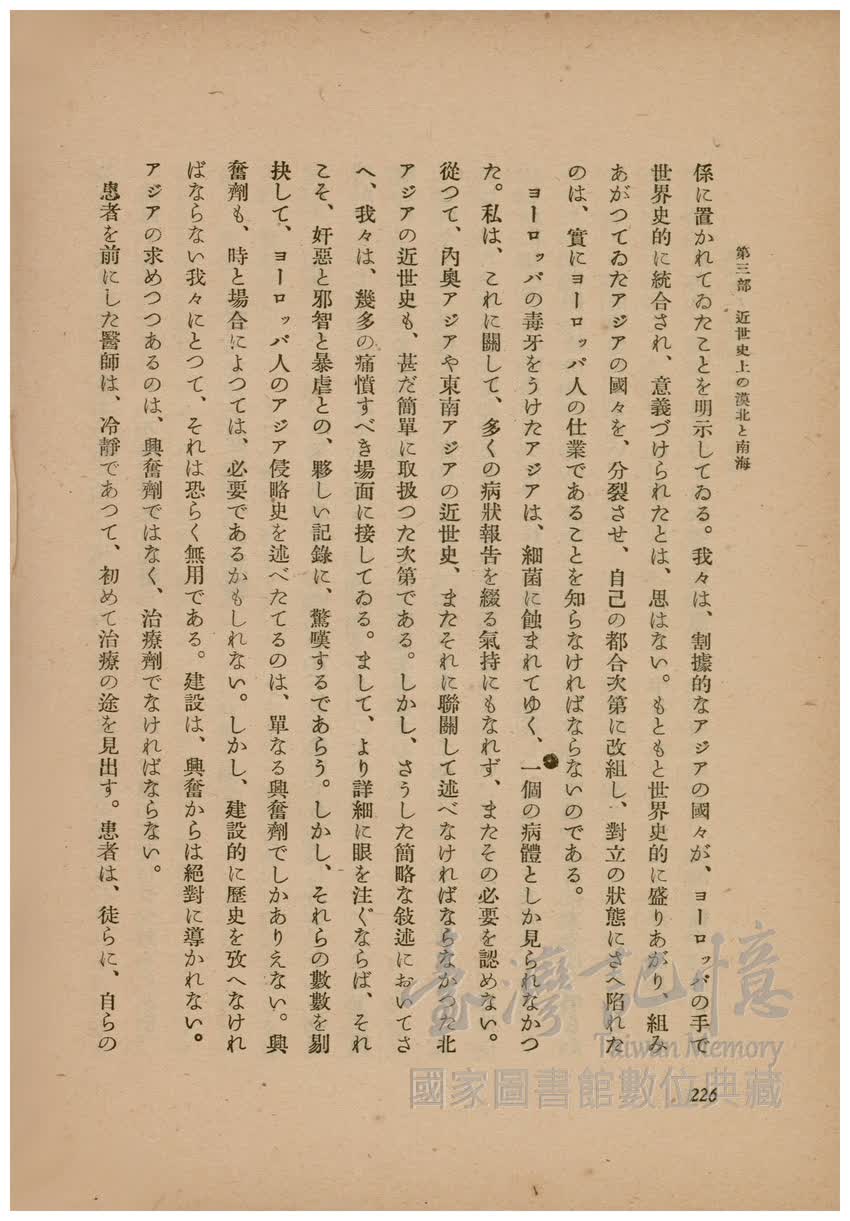 第三部　近世史上の漠北と南海
係に置かれてゐたことを明示してゐる。我々は、割據的なアジアの國々が、ヨーロッパの手で
世界史的に統合され、意義づけられたとは、思はない。もともと世界史的に盛りあがり、組み
あがつてゐたアジアの國々を、分裂させ、自己の都合次第に改組し、對立の狀態にさへ陷れた
のは、實にヨーロッパ人の仕業であることを知らなければならないのである。
ヨーロッパの毒牙をうけたアジアは、細菌に蝕まれてゆく、一個の病體としか見られなかつ
た。私は、これに關して、多くの病狀報告を綴る氣持にもなれず、またその必要を認めない。
從つて、內奧アジアや東南アジアの近世史、またそれに聯關して述べなければならなかつた北
アジアの近世史も、甚だ簡單に取扱つた次第である。しかし、さうした簡略な敍述においてさ
へ、我々は、幾多の痛憤すべき場面に接してゐる。まして、より詳細に眼を注ぐならば、それ
こそ、奸惡と邪智と暴虐との、夥しい記錄に、驚嘆するであらう。しかし、それらの數數を剔
抉して、ヨーロッパ人のアジア侵略史を述べたてるのは、單なる興奮劑でしかありえない。興
奮劑も、時と場合によつては、必要であるかもしれない。しかし、建設的に歷史を攷へなけれ
ばならない我々にとつて、それは恐らく無用である。建設は、興奮からは絕對に導かれない。
アジアの求めつつあるのは、興奮劑ではなく、治療劑でなければならない。
患者を前にした醫師は、冷靜であつて、初めて治療の途を見出す。患者は、徒らに、自らの
226
臺灣記憶
Taiwan Memory
國家圖書館數位典藏